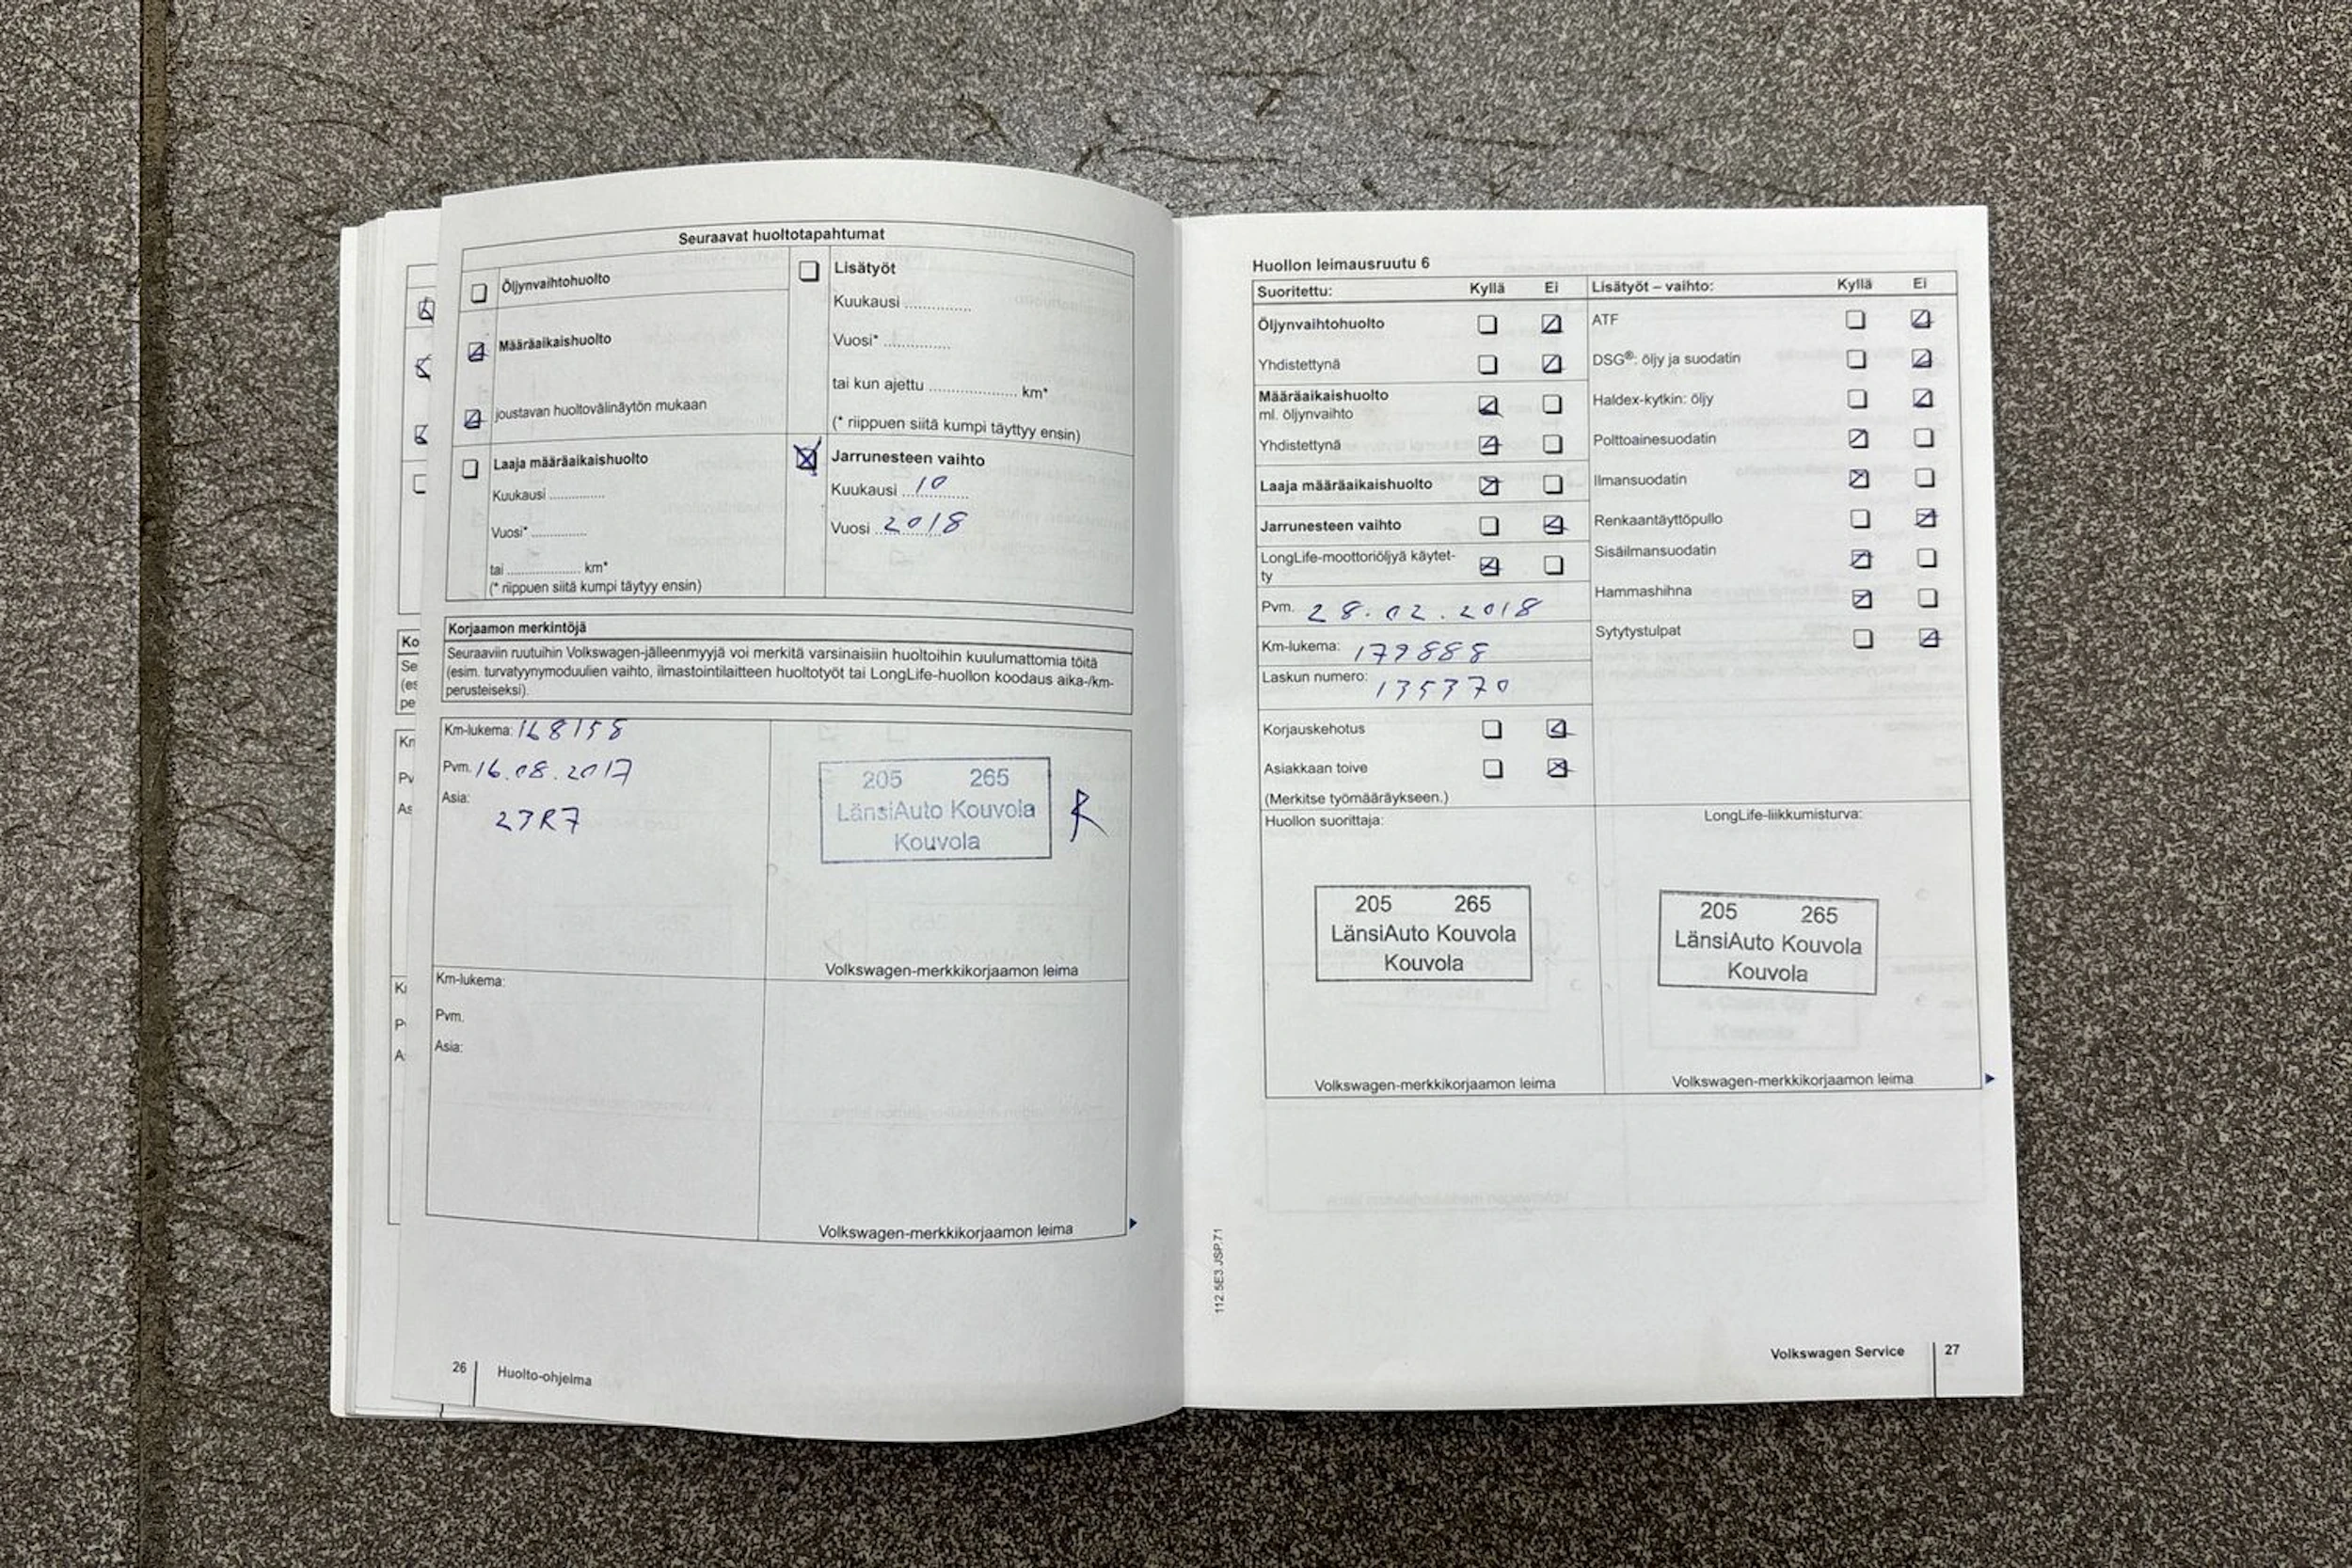 Seuraavat huoltotapahtumat
Öljynvaihtohuolto
Määräaikaishuolto
joustavan huoltovälinäytön mukaan
Laaja määräaikaishuolto
Kuukausi ..............
Vuosi* ..............
tai .................. km*
(* riippuen siitä kumpi täytyy ensin)
Lisätyöt
Kuukausi .................
Vuosi* .................
tai kun ajettu ...................... km*
(* riippuen siitä kumpi täyttyy ensin)
Jarrunesteen vaihto
Kuukausi 10
Vuosi 2018
Korjaamon merkintöjä
Seuraaviin ruutuihin Volkswagen-jälleenmyyjä voi merkitä varsinaisiin huoltoihin kuulumattomia töitä
(esim. turvatyynymoduulien vaihto, ilmastointilaitteen huoltotyöt tai LongLife-huollon koodaus aika-/km-
perusteiseksi).
Km-lukema: 168158
Pvm. 16.08.2017
Asia:
23R7
205 265
LänsiAuto Kouvola
Kouvola
Volkswagen-merkkikorjaamon leima
Km-lukema:
Pvm.
Asia:
Volkswagen-merkkikorjaamon leima
26
Huolto-ohjelma
Ko
Se
(es
pe
Kr
Pv
As
Huollon leimausruutu 6
Suoritettu: Kyllä Ei
Öljynvaihtohuolto
Yhdistettynä
Määräaikaishuolto
ml. öljynvaihto
Yhdistettynä
Laaja määräaikaishuolto
Jarrunesteen vaihto
LongLife-moottoriöljyä käytet-
ty
Pvm. 28.02.2018
Km-lukema: 179888
Laskun numero: 135370
Korjauskehotus
Asiakkaan toive
(Merkitse työmääräykseen.)
Lisätyöt – vaihto: Kyllä Ei
ATF
DSG®: öljy ja suodatin
Haldex-kytkin: öljy
Polttoainesuodatin
Ilmansuodatin
Renkaantäyttöpullo
Sisäilmansuodatin
Hammashihna
Sytytystulpat
Huollon suorittaja:
205 265
LänsiAuto Kouvola
Kouvola
Volkswagen-merkkikorjaamon leima
LongLife-liikkumisturva:
205 265
LänsiAuto Kouvola
Kouvola
Volkswagen-merkkikorjaamon leima
112.5E3.JSP.71
Volkswagen Service
27